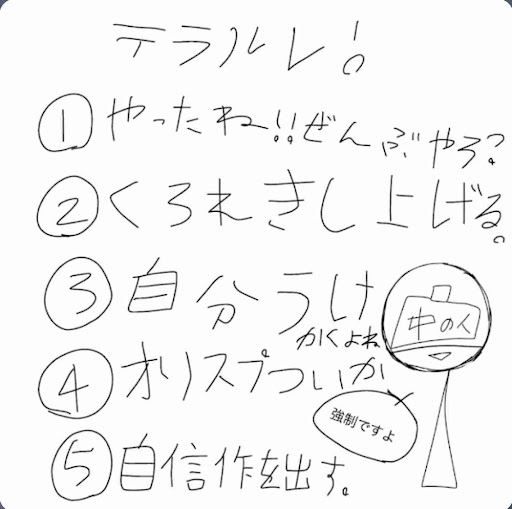 テラルレ!
①やったね!!ぜんぶやろ?
②くろれきし上げる。
③自分うけ
かくよね
中の人
④オリスプついか
強制ですよ
⑤自信作を出す。